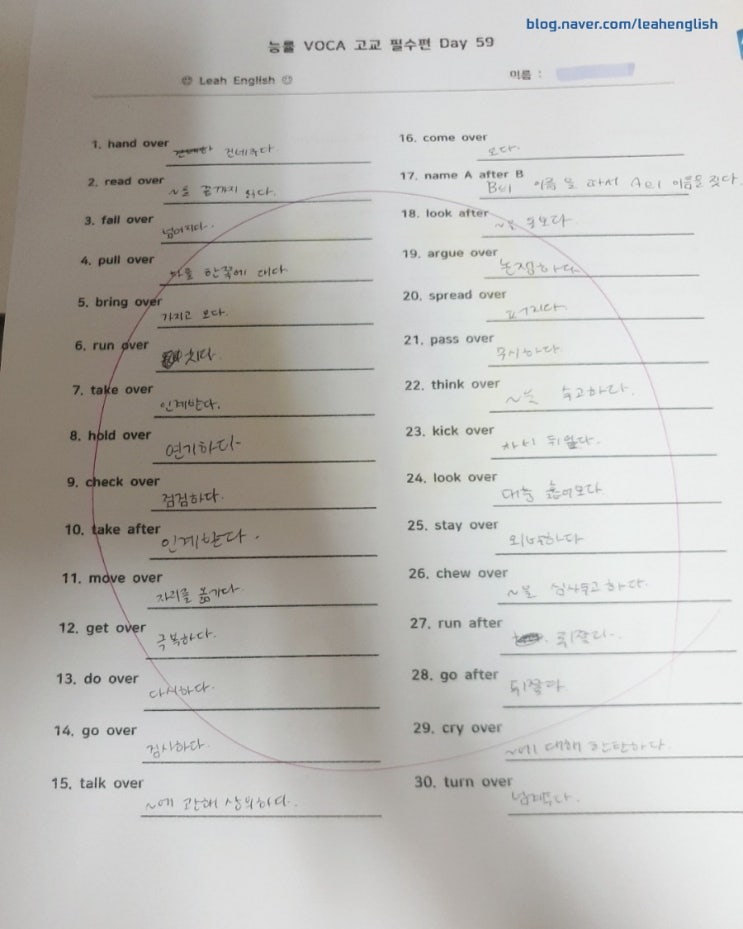 blog.naver.com/leahenglish
능률 VOCA 고교 필수편 Day 59
☺ Leah English ☺
이름 :
1. hand over 건네주다.
2. read over ~을 끝까지 읽다.
3. fall over 넘어지다.
4. pull over 차를 한쪽에 대다
5. bring over 가지고 오다.
6. run over 치다.
7. take over 인계받다.
8. hold over 연기하다
9. check over 점검하다.
10. take after 인계받다.
11. move over 자리를 옮기다.
12. get over 극복하다.
13. do over 다시하다.
14. go over 검사하다.
15. talk over ~에 관해 상의하다.
16. come over 오다.
17. name A after B B의 이름을 따서 A의 이름을 짓다.
18. look after ~을 돌보다
19. argue over 논쟁하다
20. spread over 퍼지다.
21. pass over 무시하다.
22. think over ~을 숙고하다.
23. kick over 차서 뒤엎다.
24. look over 대충 훑어보다
25. stay over 외박하다
26. chew over ~을 심사숙고하다.
27. run after 뒤쫓다.
28. go after 뒤쫓다
29. cry over ~에 대해 한탄하다
30. turn over